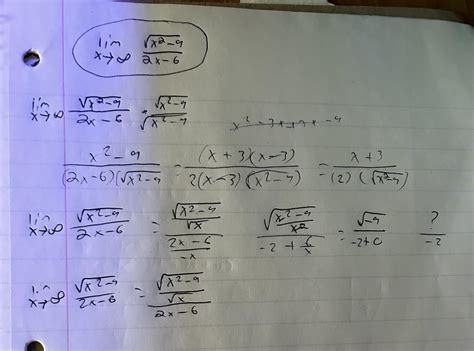 lim x→∞ √(x²-9) / (2x-6)
lim x→∞ √(x²-9) / (2x-6) · √(x²-9) / √(x²-9)
x² - 9 / (2x-6)(√(x²-9) = (x+3)(x-3) / 2(x-3)(√(x²-9) = x+3 / (2)(√(x²-9))
lim x→∞ √(x²-9) / (2x-6) = (√(x²-9) / √x) / ((2x-6) / -x) √((x²-9) / x²) / (-2 + 6/x) = √-9 / (-2+0) ? / -2
lim x→∞ √(x²-9) / (2x-6) = (√(x²-9) / √x) / (2x-6)